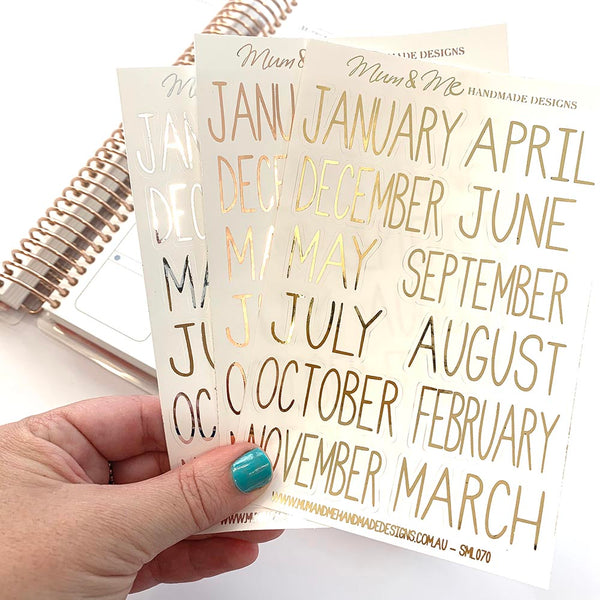 Mum & Me HANDMADE DESIGNS
JANUARY APRIL
DECEMBER JUNE
MAY SEPTEMBER
JULY AUGUST
OCTOBER FEBRUARY
NOVEMBER MARCH
WWW.MUMANDMEHANDMADEDESIGNS.COM.AU - SML070
Mum & HANDMADE DESIGNS
JANU
DECE
MA
J
O
Mum
JAN
DEC
MA
JU
OC